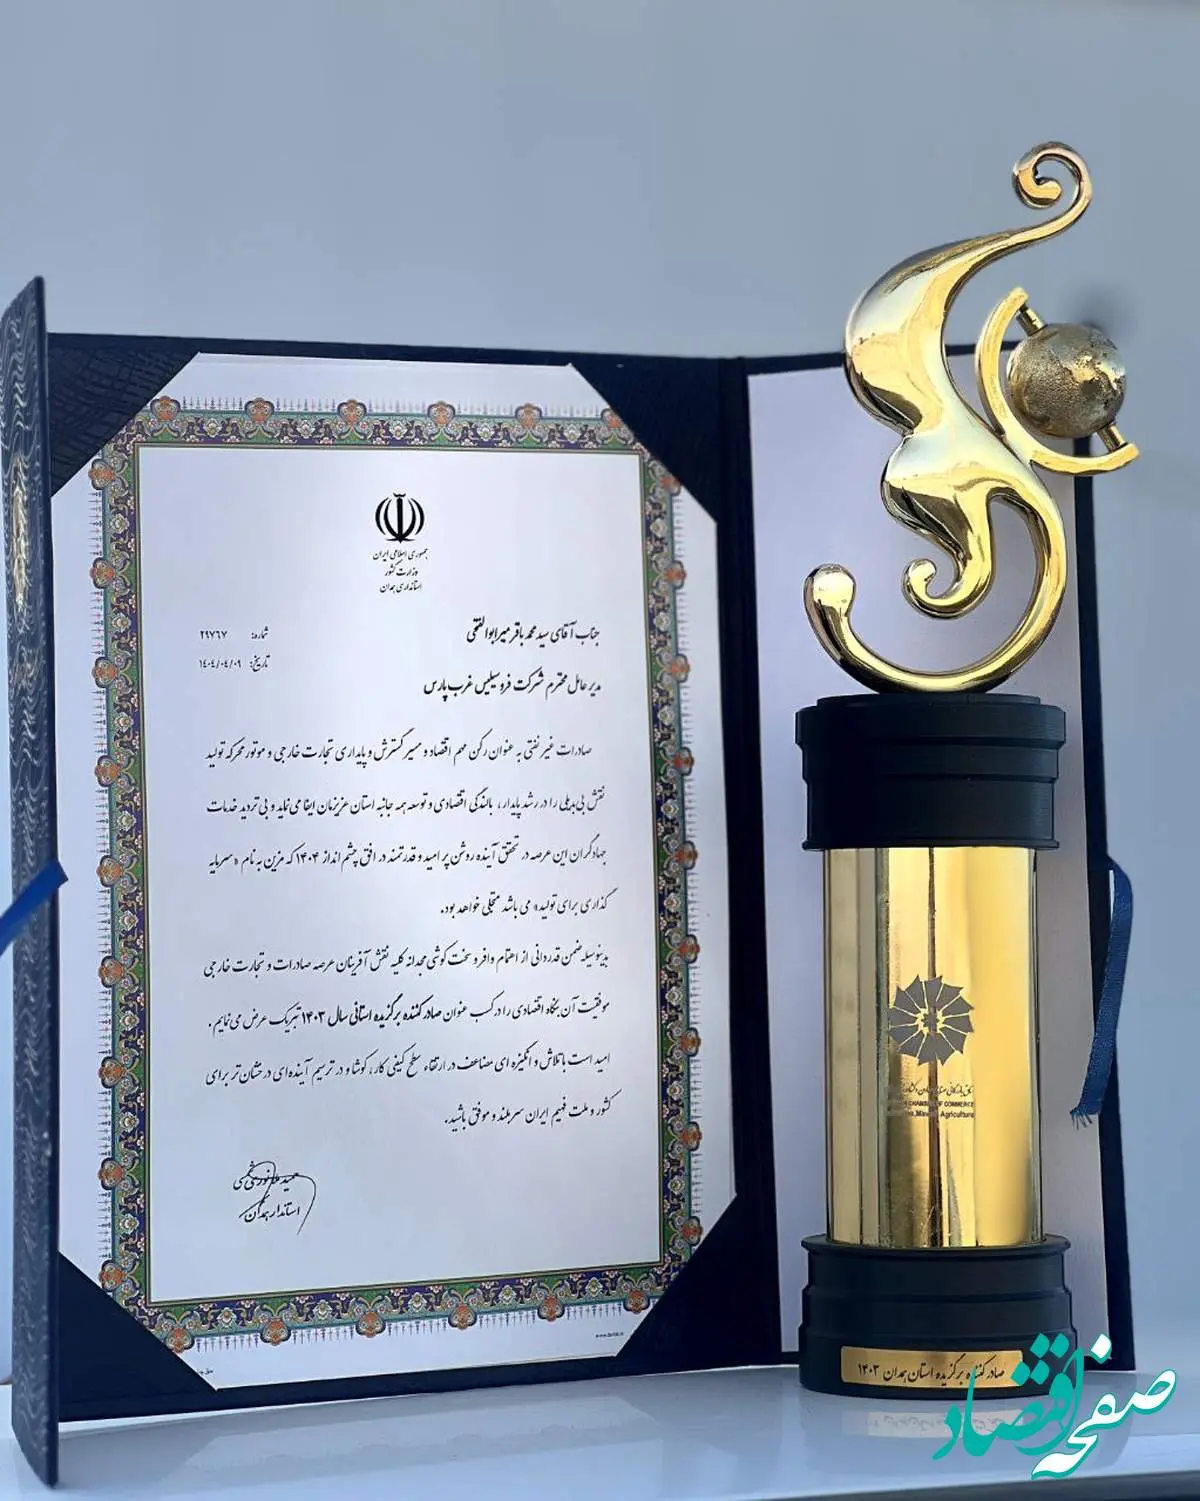 جمهوری اسلامی ایران
وزارت کشور
استانداری همدان
شماره: ۲۹۷۶۷
تاریخ: ۱۴۰۴/۰۴/۰۹
جناب آقای سید محمد باقر میرابوالفتحی
مدیر عامل محترم شرکت فروسیلیس غرب پارس
صادرات غیر نفتی به عنوان رکن مهم اقتصاد و مسیر گسترش و پایداری تجارت خارجی و موتور محرکه تولید
نقش بی بدیلی را در رشد پایدار، بالندگی اقتصادی و توسعه همه جانبه استان عزیزمان ایفا می نماید و بی تردید خدمات
جهادگران این عرصه در تحقق آینده روشن پر امید و قدرتمند در افق چشم انداز ۱۴۰۴ که مزین به نام «سرمایه
گذاری برای تولید» می باشد متجلی خواهد بود.
بدینوسیله ضمن قدردانی از اهتمام وافر و سخت کوشی مجدانه کلیه نقش آفرینان عرصه صادرات و تجارت خارجی
موفقیت آن بنگاه اقتصادی را در کسب عنوان صادر کننده برگزیده استانی سال ۱۴۰۳ تبریک عرض می نمایم.
امید است با تلاش و انگیزه ای مضاعف در ارتقاء سطح کیفی کار، کوشا و در ترسیم آینده ای درخشان تر برای
کشور و ملت فهیم ایران سربلند و موفق باشید.
حمید ملانوری شمسی
استاندار همدان
CHAMBER OF COMMERCE
Mines, Agriculture
صادر کننده برگزیده استان همدان ۱۴۰۳
صفحه اقتصاد